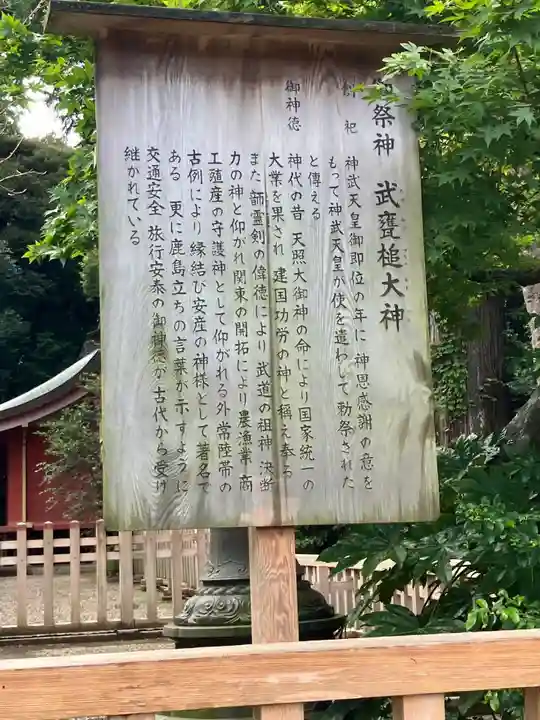 御祭神 武甕槌大神
創祀 神武天皇御即位の年に 神恩感謝の意を
もって神武天皇が使を遣わして勅祭された
と傳える
御神徳 神代の昔 天照大御神の命により国家統一の
大業を果され 建国功労の神と稱え奉る
また 韴霊剣の偉徳により 武道の祖神 決断
力の神と仰がれ関東の開拓により 農漁業 商
工殖産の守護神として仰がれる外 常陸帯の
古例により 縁結び 安産の神様として著名で
ある 更に鹿島立ちの言葉が示すように
交通安全 旅行安泰の御神徳が 古代から受け
継かれている